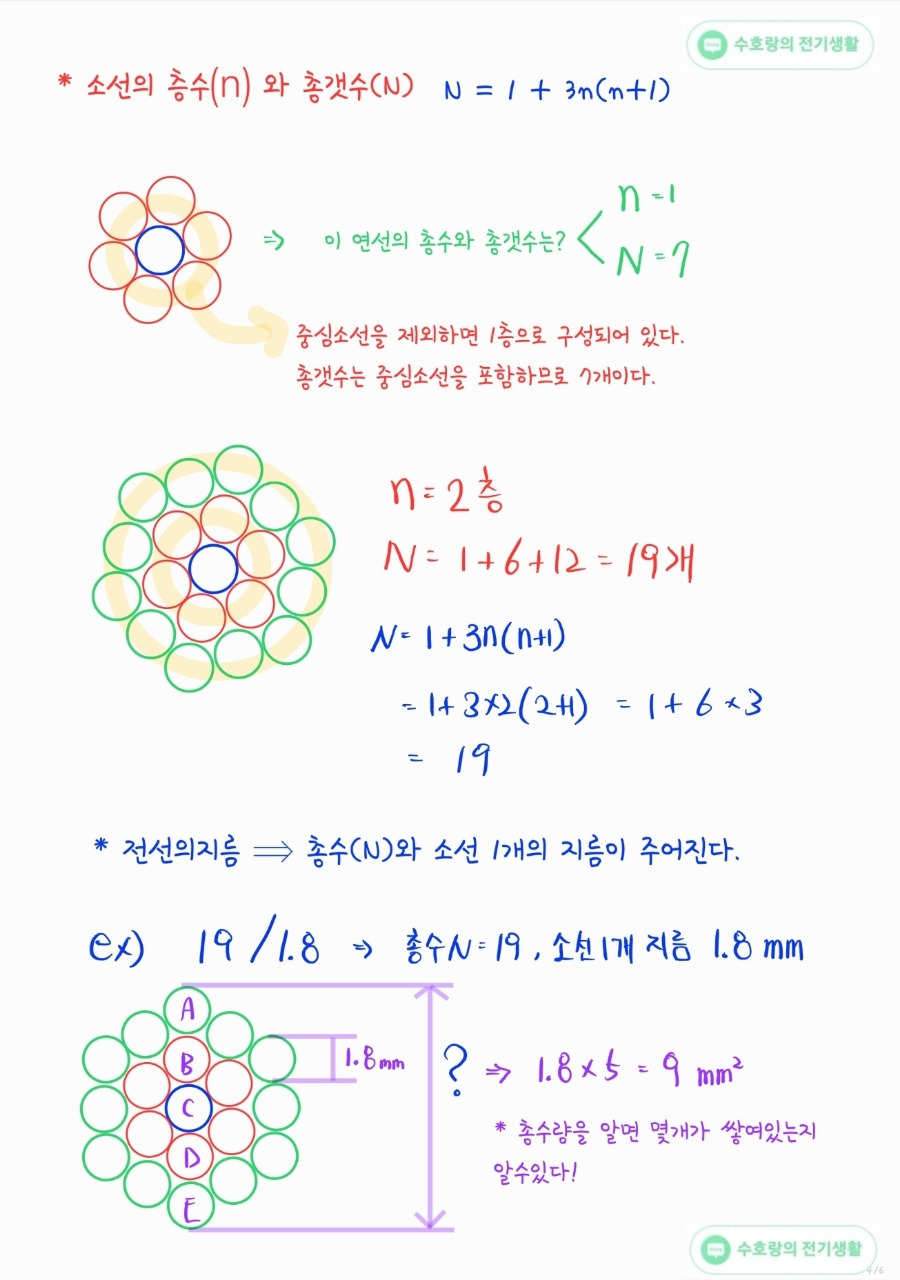 수호랑의 전기생활
* 소선의 층수(n) 와 총갯수(N) N = 1 + 3n(n+1)
⇒ 이 연선의 층수와 총갯수는? < n = 1
N = 7
중심소선을 제외하면 1층으로 구성되어 있다.
총갯수는 중심소선을 포함하므로 7개이다.
n = 2층
N = 1+6+12 = 19개
N = 1+3n(n+1)
= 1+3×2(2+1) = 1+6×3
= 19
* 전선의지름 ⟹ 총수(N)와 소선 1개의 지름이 주어진다.
ex) 19/1.8 ⇒ 총수N=19, 소선1개 지름 1.8mm
A
B
C
D
E
1.8mm
? ⇒ 1.8×5 = 9 mm²
* 총수량을 알면 몇개가 쌓여있는지
알수있다!
수호랑의 전기생활
4/6